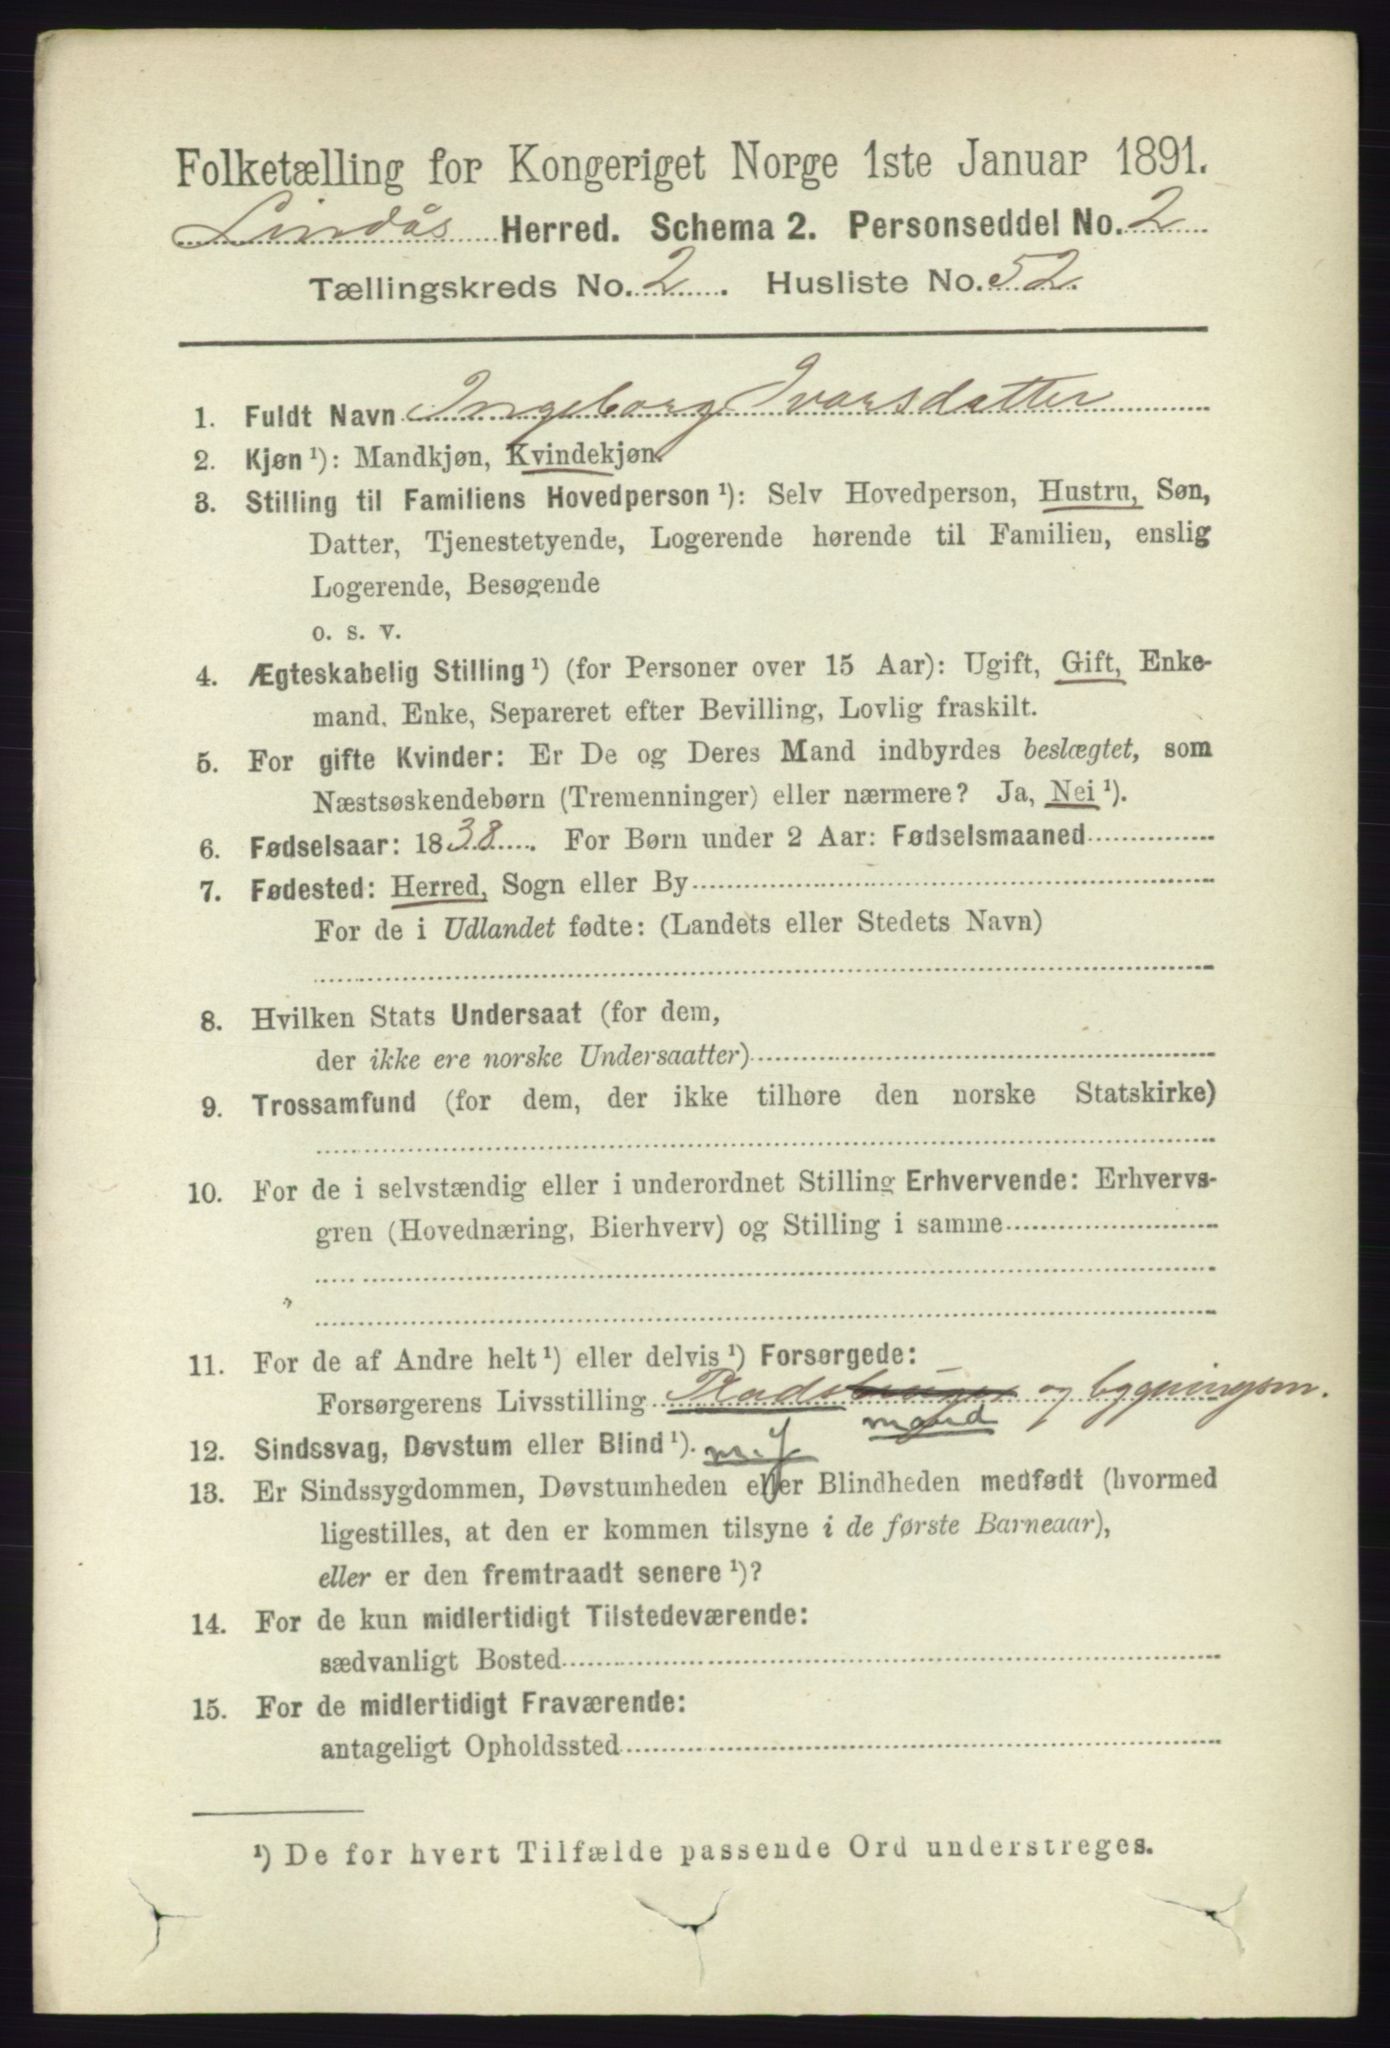 Folketælling for Kongeriget Norge 1ste Januar 1891.
Lindås Herred. Schema 2. Personseddel No. 2
Tællingskreds No. 2. Husliste No. 52.
1. Fuldt Navn Ingeborg Ivarsdatter
2. Kjøn¹): Mandkjøn, Kvindekjøn.
3. Stilling til Familiens Hovedperson¹): Selv Hovedperson, Hustru, Søn,
Datter, Tjenestetyende, Logerende hørende til Familien, enslig
Logerende, Besøgende
o. s. v.
4. Ægteskabelig Stilling¹) (for Personer over 15 Aar): Ugift, Gift, Enke-
mand, Enke, Separeret efter Bevilling, Lovlig fraskilt.
5. For gifte Kvinder: Er De og Deres Mand indbyrdes beslægtet, som
Næstsøskendebørn (Tremenninger) eller nærmere? Ja, Nei¹).
6. Fødselsaar: 1838. For Børn under 2 Aar: Fødselsmaaned
7. Fødested: Herred, Sogn eller By
For de i Udlandet fødte: (Landets eller Stedets Navn)
8. Hvilken Stats Undersaat (for dem,
der ikke ere norske Undersaatter)
9. Trossamfund (for dem, der ikke tilhøre den norske Statskirke)
10. For de i selvstændig eller i underordnet Stilling Erhvervende: Erhvervs-
gren (Hovednæring, Bierhverv) og Stilling i samme
11. For de af Andre helt¹) eller delvis¹) Forsørgede:
Forsørgerens Livsstilling Pladsbruger og bygningsm.
mand
12. Sindssvag, Døvstum eller Blind¹).
13. Er Sindssygdommen, Døvstumheden eller Blindheden medfødt (hvormed
ligestilles, at den er kommen tilsyne i de første Barneaar),
eller er den fremtraadt senere¹)?
14. For de kun midlertidigt Tilstedeværende:
sædvanligt Bosted
15. For de midlertidigt Fraværende:
antageligt Opholdssted
¹) De for hvert Tilfælde passende Ord understreges.